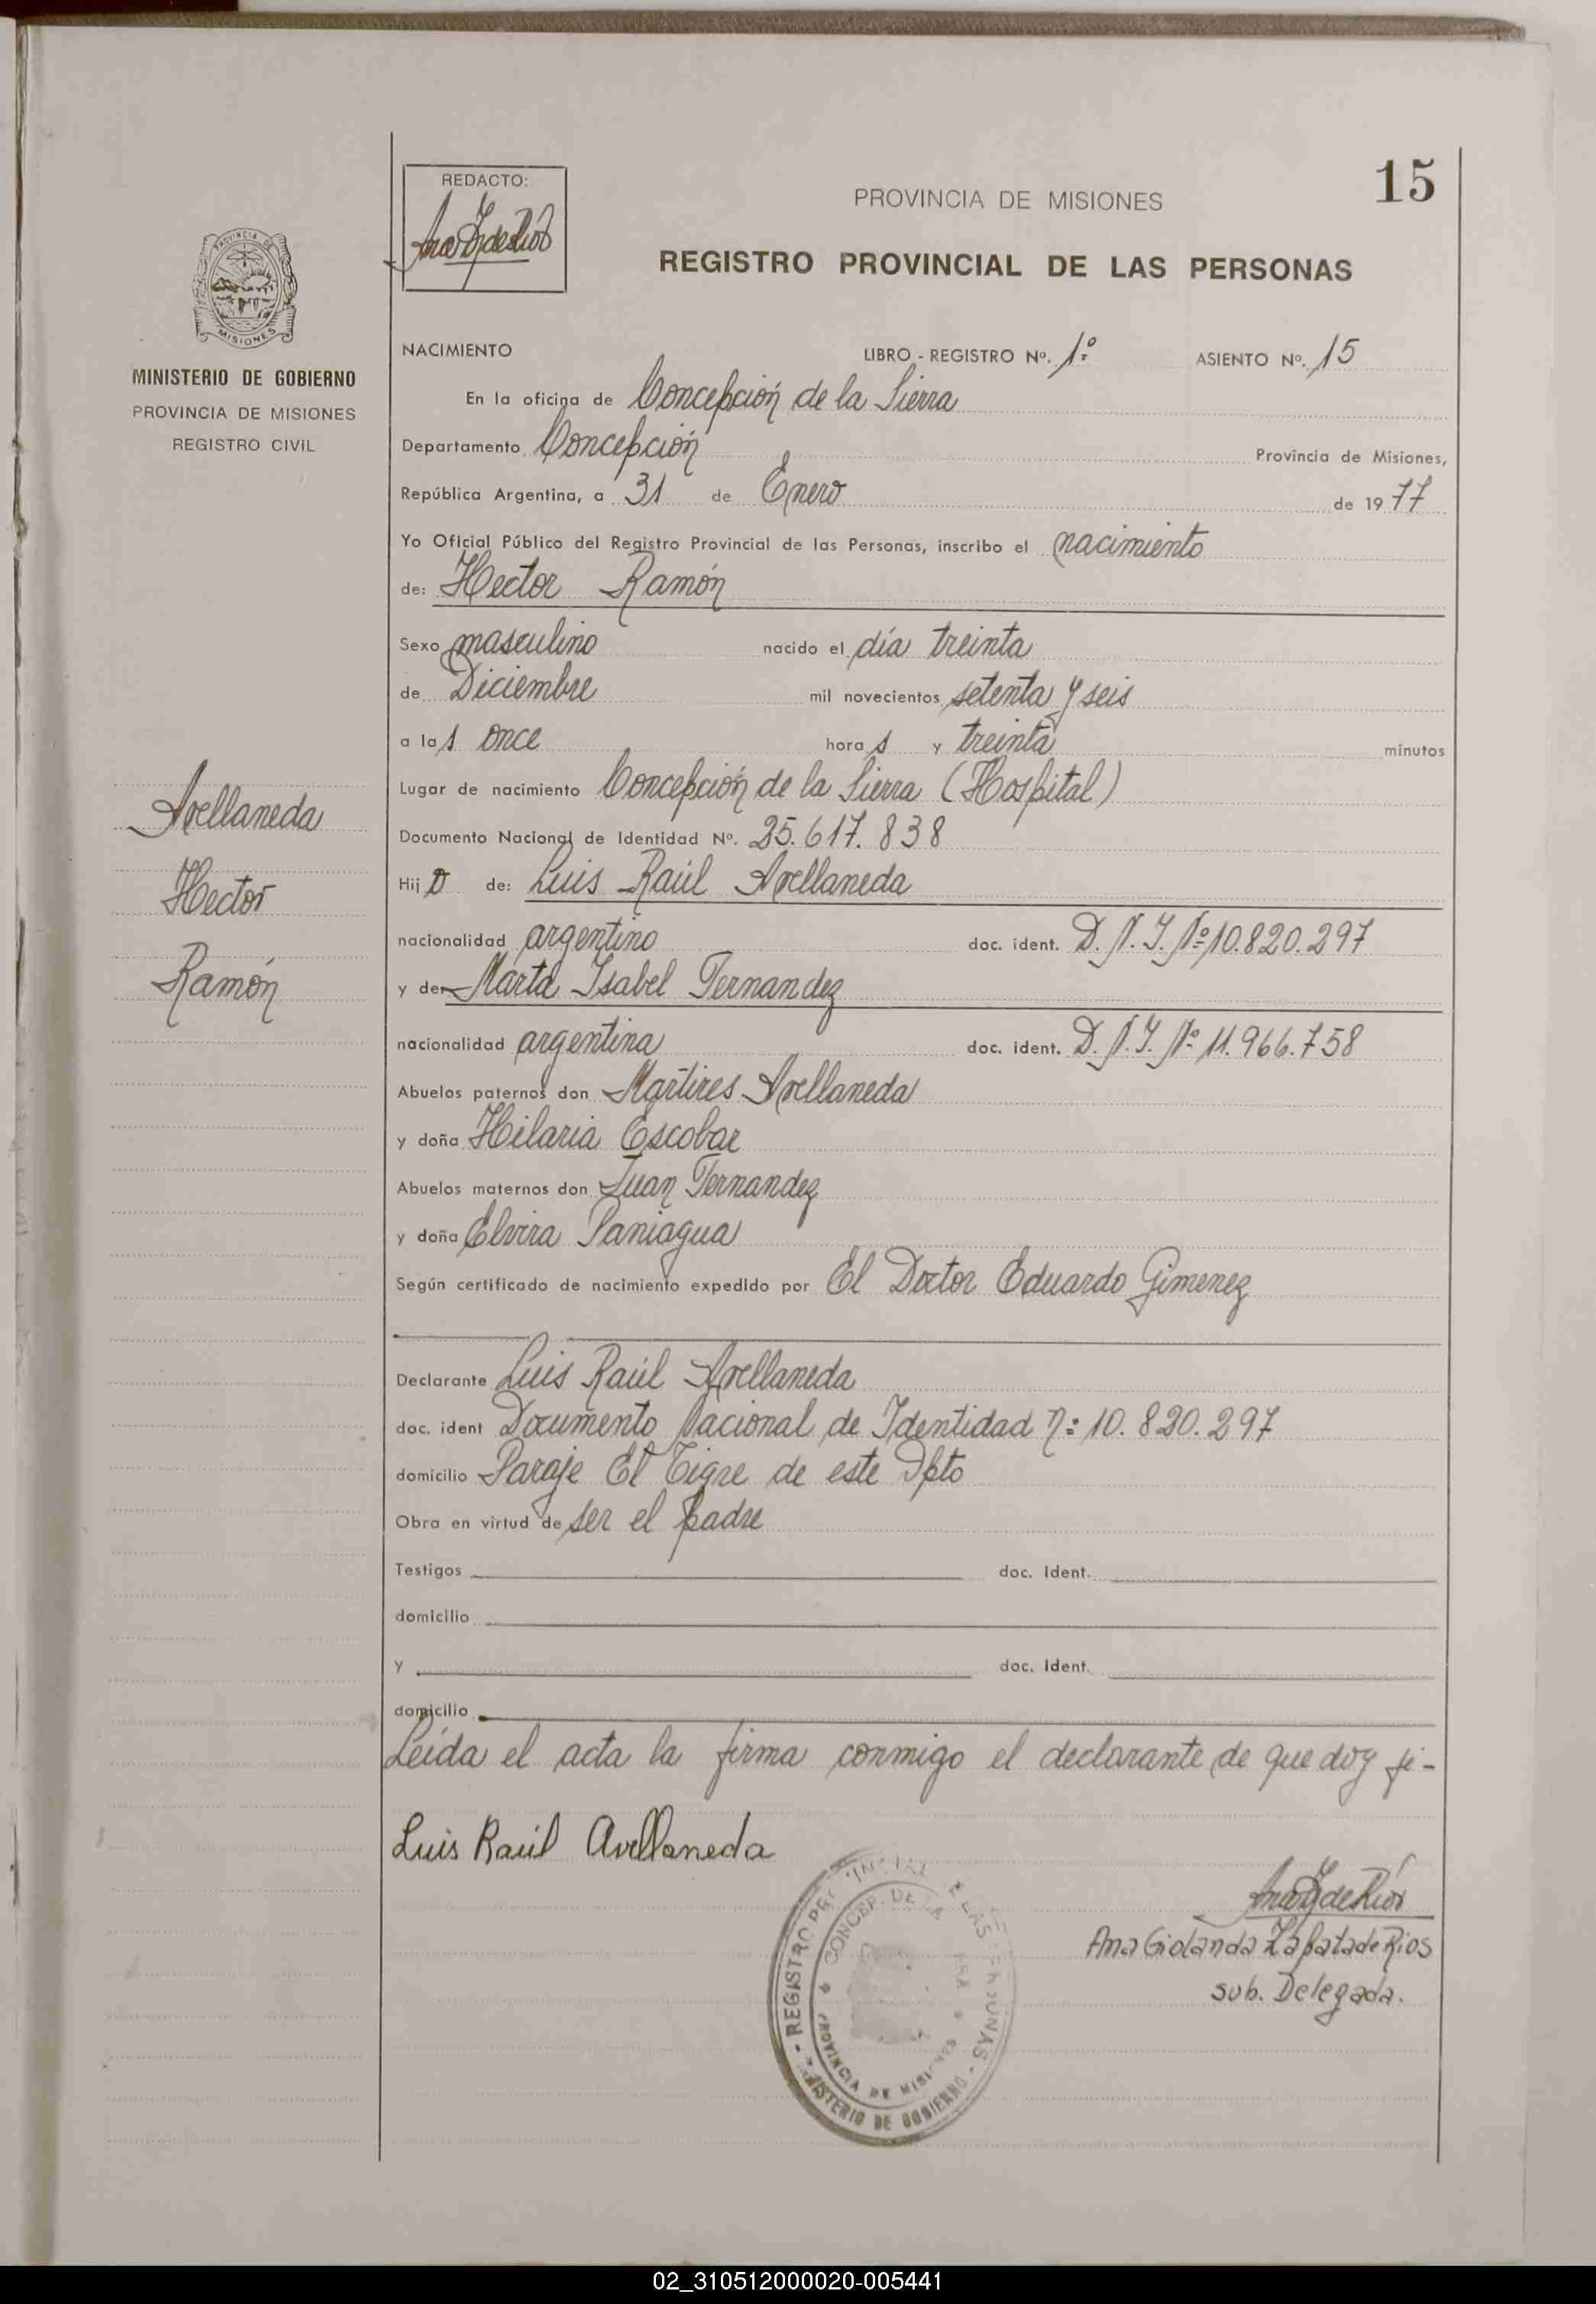 15
REDACTO:
PROVINCIA DE MISIONES
REGISTRO PROVINCIAL DE LAS PERSONAS
PROVINCIA DE
MISIONES
MINISTERIO DE GOBIERNO
PROVINCIA DE MISIONES
REGISTRO CIVIL
NACIMIENTO LIBRO - REGISTRO Nº. 1º ASIENTO Nº. 15
En la oficina de Concepción de la Sierra
Departamento Concepción Provincia de Misiones,
República Argentina, a 31 de Enero de 1977
Yo Oficial Público del Registro Provincial de las Personas, inscribo el nacimiento
de: Hector Ramón
Sexo masculino nacido el día treinta
de Diciembre mil novecientos setenta y seis
a las once horas y treinta minutos
Lugar de nacimiento Concepción de la Sierra (Hospital)
Documento Nacional de Identidad Nº. 25.617.838
Hijo de: Luis Raúl Avellaneda
nacionalidad argentino doc. ident. D.N.I. Nº 10.820.297
y de Marta Isabel Fernandez
nacionalidad argentina doc. ident. D.N.I. Nº 11.966.758
Abuelos paternos don Martires Avellaneda
y doña Hilaria Escobar
Abuelos maternos don Juan Fernandez
y doña Elvira Paniagua
Según certificado de nacimiento expedido por El Doctor Eduardo Gimenez
Declarante Luis Raúl Avellaneda
doc. ident Documento Nacional de Identidad nº 10.820.297
domicilio Paraje El Tigre de este Dpto
Obra en virtud de ser el padre
Testigos doc. Ident.
domicilio
y doc. Ident.
domicilio
Leída el acta la firma conmigo el declarante de que doy fe-
Luis Raúl Avellaneda
Ana Giolanda Zapata de Rios
sub. Delegada.
Avellaneda
Hector
Ramón
REGISTRO PROVINCIAL DE LAS PERSONAS
CONCEP. DE LA
PROVINCIA DE MISIONES
MINISTERIO DE GOBIERNO
02_310512000020-005441